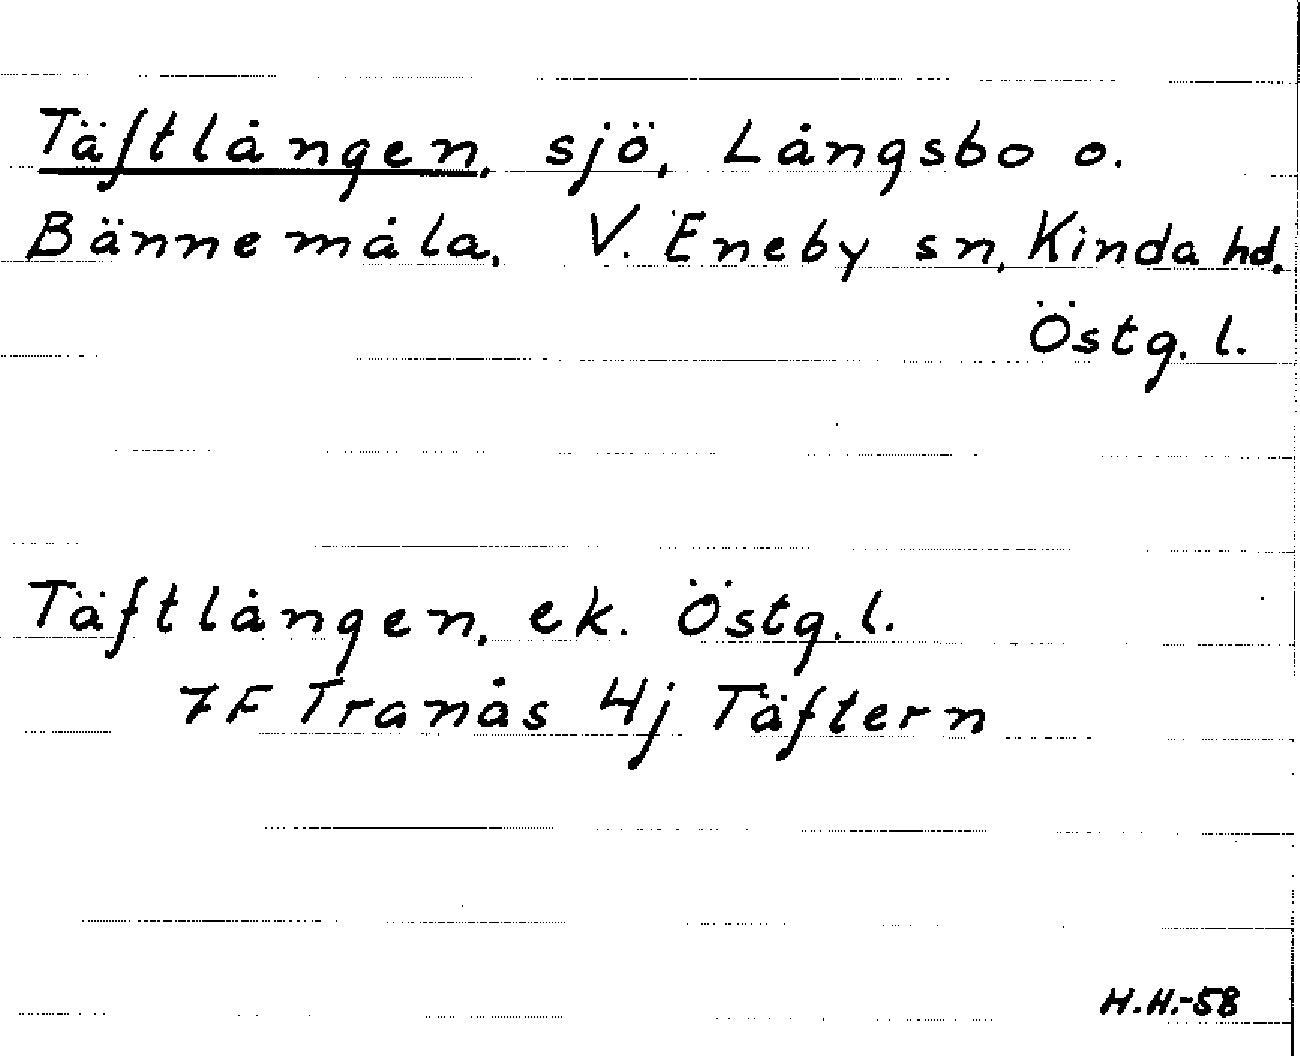 Täftlången, sjö, Långsbo o.
Bännemåla, V. Eneby sn, Kinda hd.
Östg. l.
Täftlången, ek. Östg. l.
7F Tranås 4j Täftern
H.H.-58